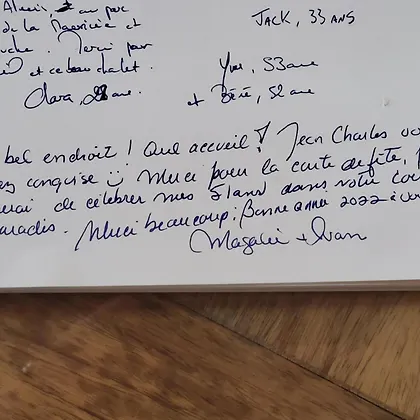 Alexis, au parc
de la Mauricie et
uche. Merci pour
et ce beau chalet.
Clara, 28 ans.
JACK, 33 ANS
Yves, 53 ans
et Béné, 52 ans
bel endroit ! Quel accueil ! Jean Charles
conquise Merci pour la carte de fête,
de célébrer mes 51 ans dans votre
paradis. Merci beaucoup! Bonne année 2022 à
Magalie + Ivan